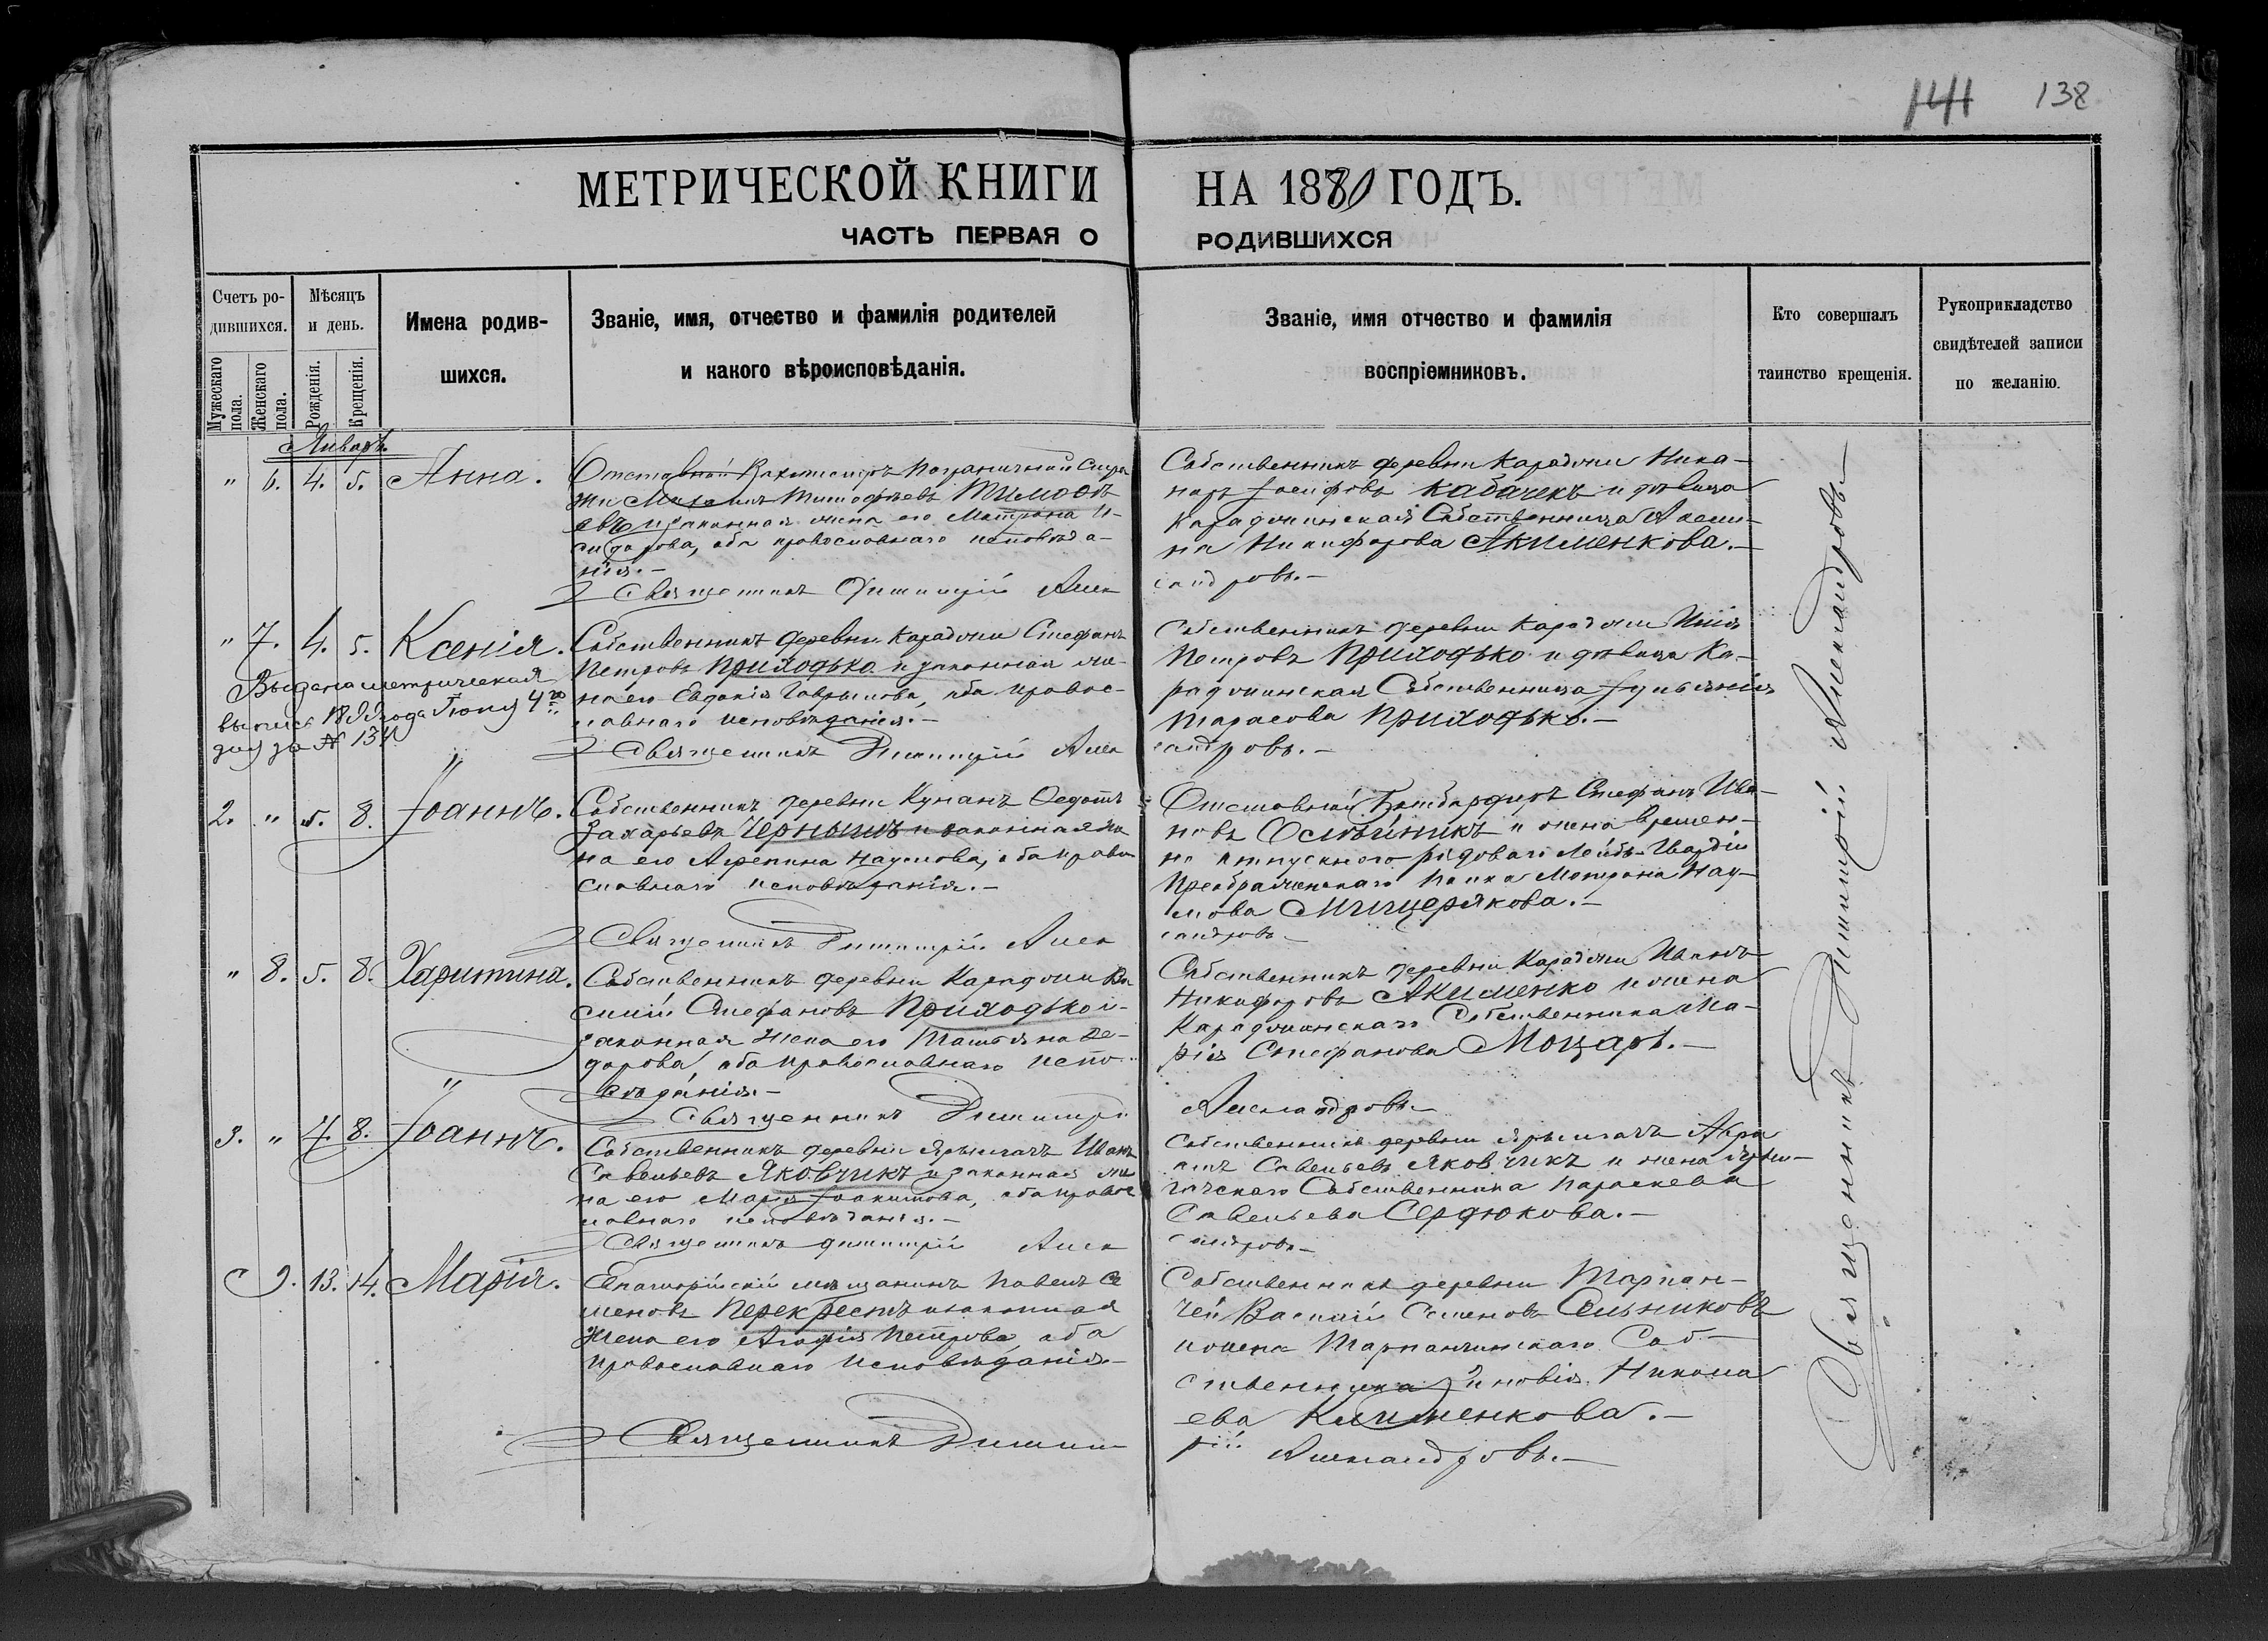 141 138
МЕТРИЧЕСКОЙ КНИГИ НА 1880 ГОДЪ.
ЧАСТЬ ПЕРВАЯ О РОДИВШИХСЯ
Счетъ ро-
дившихся.
Мужескаго
пола.
Женскаго
пола.
Мѣсяцъ
и день.
Рожденія.
Крещенія.
Имена родив-
шихся.
Званіе, имя, отчество и фамилія родителей
и какого вѣроисповѣданія.
Званіе, имя отчество и фамилія
воспріемниковъ.
Кто совершалъ
таинство крещенія.
Рукоприкладство
свидѣтелей записи
по желанію.
Январь
" 6. 4. 5. Анна.
Отставной Вахмистръ Пограничной Стра
жи Михаилъ Тимофѣевъ Тимоѳѣ
евъ и законная жена его Матрона И-
сидорова, оба православнаго исповѣда-
нія.—
Священникъ Димитрій Алек
Собственникъ деревни Караджи Ника-
норъ Іосифовъ Кабачекъ и дѣвица
Караджинская Собственница Аксин-
на Никифорова Акименкова.—
сандровъ.—
" 7. 4. 5. Ксенія.
Выдана метрическая
выпись года Іюня 4го
дня за № 134
Собственникъ деревни Караджи Стефанъ
Петровъ Приходько и законная же-
на его Евдокія Гаврилова, оба правос-
лавнаго исповѣданія.—
Священникъ Димитрій Алек
Собственникъ деревни Караджи Илія
Петровъ Приходько и дѣвица Ка-
раджинская Собственница Іульянія
Тарасова Приходько.—
сандровъ.—
2. " 5. 8. Іоаннъ.
Собственникъ деревни Кунанъ Ѳедотъ
Захарьевъ Чернышъ и законная же
на его Агрепина Наумова, оба право
славнаго исповѣданія.—
Священникъ Димитрій Алек
Отставный Бомбардиръ Стефанъ Ива-
новъ Олейникъ и жена времен-
но отпускного рядоваго Лейбъ-Гвардіи
Преображенскаго Полка Матрона Нау-
мова Мищерякова.—
сандровъ—
" 8. 5. 8. Харитина.
Собственникъ деревни Караджи Ва
силій Стефановъ Приходько и-
законная жена его Татьяна Ѳе-
дорова, оба православнаго испо-
вѣданія.—
Священникъ Димитрі
Собственникъ деревни Караджи Иванъ
Никифоровъ Акименко и жена
Караджинскаго Собственника Ма-
рія Стефанова Моцарь.—
Александровъ—
3. " 4. 8. Іоаннъ.
Собственникъ деревни Ярылгачъ Иванъ
Савельевъ Яковчикъ и законная же
на его Марія Іоакимова, оба правос
лавнаго исповѣданія.—
Священникъ Димитрій Алек
Собственникъ деревни Ярылгачъ Авра
амъ Савельевъ Яковчикъ и жена Ярыл-
гачскаго Собственника Параскева
Савельева Сердюкова.—
сандровъ—
9. 13. 14. Марія.
Евпаторійскій мѣщанинъ Павелъ Се
меновъ Перекрестъ и законная
жена его Агафія Петрова, оба
православнаго исповѣданія—
Священникъ Димит
Собственникъ деревни Тарпан-
чей Василій Семеновъ Сельниковъ
и жена Тарпанчинскаго Соб-
ственника Зиновія Никола
ева Клименкова.—
рій Александровъ.—
Священникъ Димитрій Александровъ—